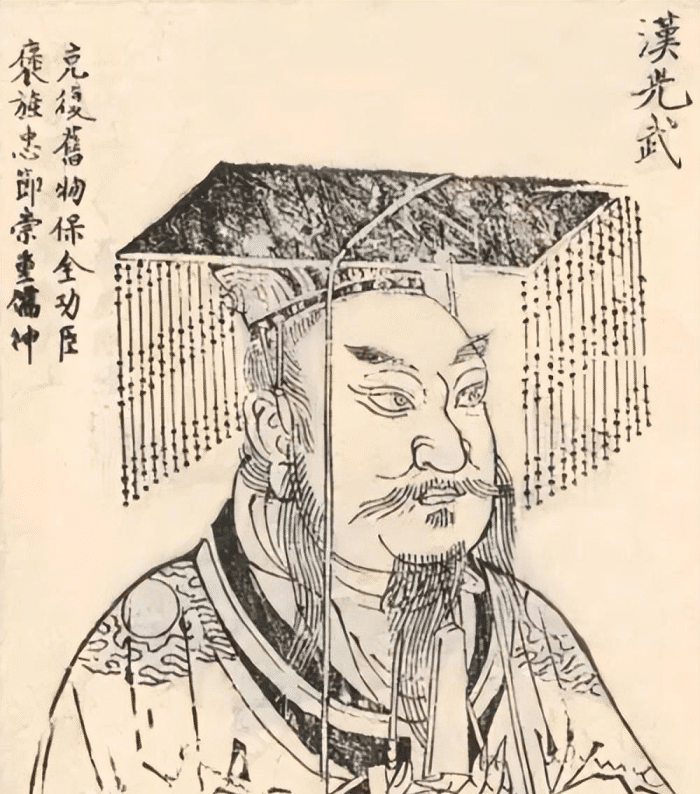 漢光武
克復舊物保全功臣
褒旌忠節崇重儒紳